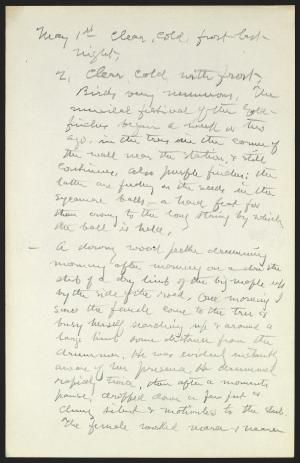 May 1st Clear, cold, frost last
night,
2, Clear, cold with frost,
Birds very numerous, The
musical festival of the Gold-
finches began a week or two
ago, in the trees on the corner of
the wall near the station, & still
continues, also purple finches; the
latter are feeding on the seeds in the
sycamore balls, – a hard feat for
them owing to the long string by which
the ball is held.
– A downy wood pecker drumming
morning after morning on a dry
stub of a dry limb of the big maple
by the side of the road. One morning
since the female came to the tree &
busy herself searching up & around a
large limb some distance from the
drummer. He was evident instantly
aware of her presence. He drummed
rapidly twice, then after a moments
pause, dropped down a few feet &
clung silent & motionless to the stub.
The female worked nearer & nearer